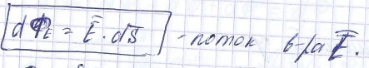 dΦ_E = Ē · dS̄ - поток в-ра Ē.